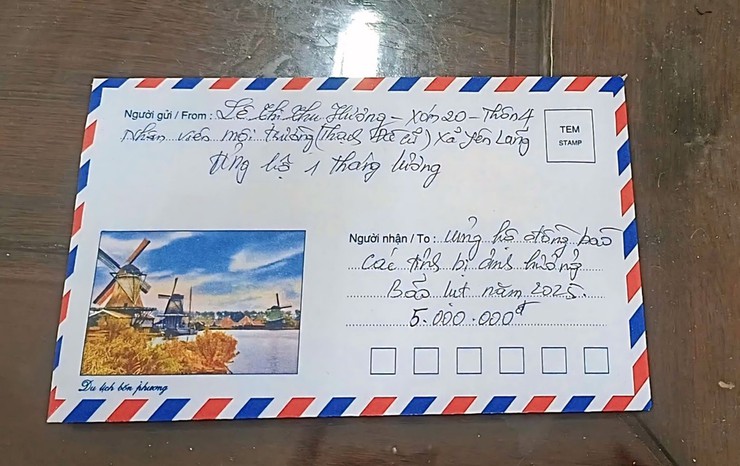 Người gửi / From : Lê Thị Thu Hương - Xóm 20 - Thôn 4
Nhân viên môi trường (Thạch Đà cũ) Xã Yên Lãng
Ủng hộ 1 tháng lương
TEM
STAMP
Người nhận / To : Ủng hộ đồng bào
Các tỉnh bị ảnh hưởng
Bão lụt năm 2025.
5.000.000đ
Du lịch bốn phương